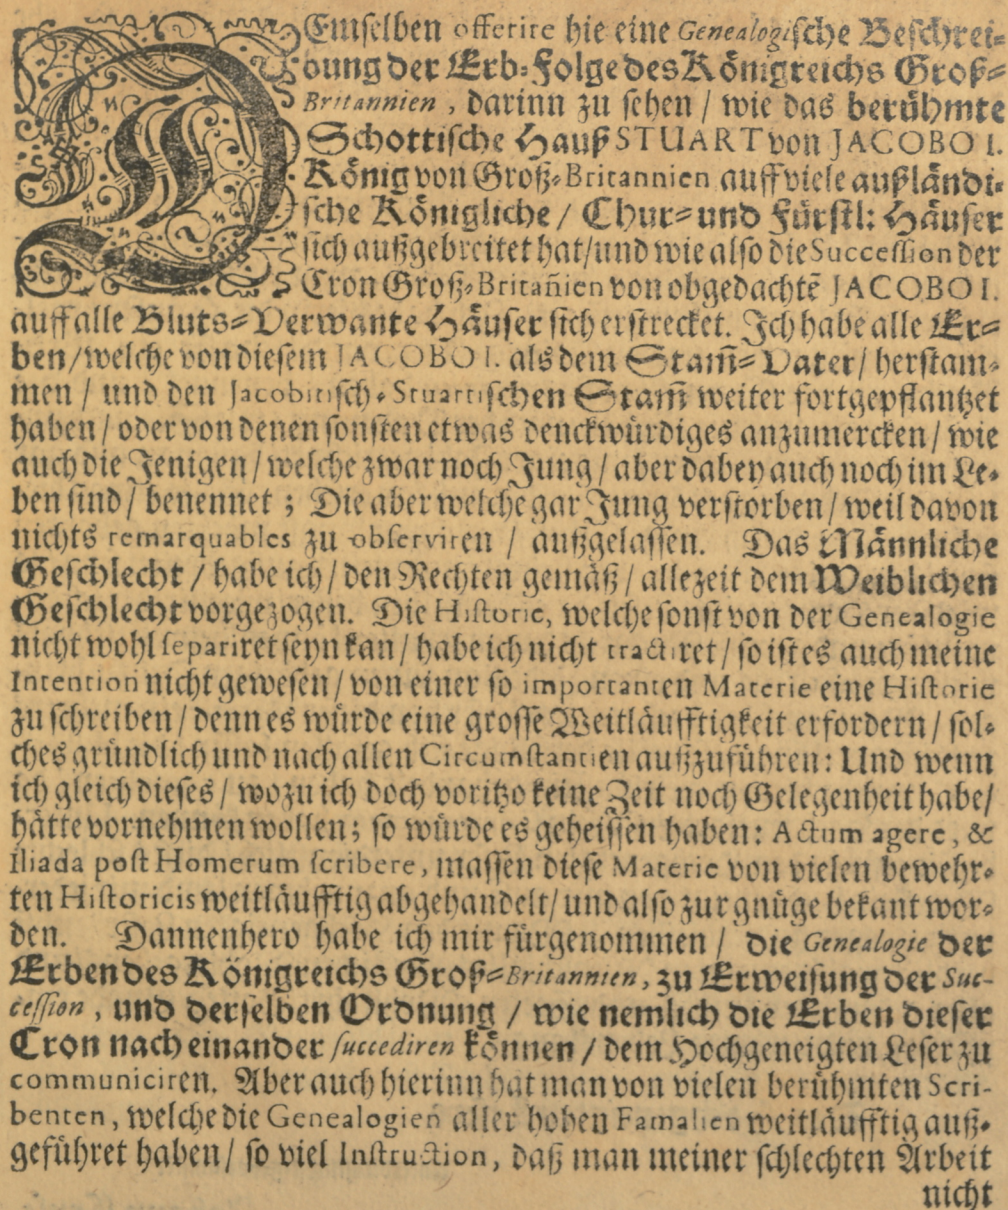 DEmselben offerire hie eine Genealogische Beschrei-
bung der Erb-Folge des Königreichs Groß-
Britannien, darinn zu sehen / wie das berühmte
Schottische Hauß STUART von JACOBO I.
König von Groß-Britannien auff viele außländi-
sche Königliche / Chur- und Fürstl: Häuser
sich außgebreitet hat / und wie also die Succession der
Cron Groß-Britañien von obgedachtẽ JACOBO I.
auff alle Bluts-Verwante Häuser sich erstrecket. Ich habe alle Er-
ben / welche von diesem JACOBO I. als dem Stam̃-Vater / herstam-
men / und den Jacobitisch-Stuartischen Stam̃ weiter fortgepflantzet
haben / oder von denen sonsten etwas denckwürdiges anzumercken / wie
auch die Jenigen / welche zwar noch Jung / aber dabey auch noch im Le-
ben sind / benennet ; Die aber welche gar Jung verstorben / weil davon
nichts remarquables zu observiren / außgelassen. Das Männliche
Geschlecht / habe ich / den Rechten gemäß / allezeit dem Weiblichen
Geschlecht vorgezogen. Die Historie, welche sonst von der Genealogie
nicht wohl separiret seyn kan / habe ich nicht tractiret / so ist es auch meine
Intention nicht gewesen / von einer so importanten Materie eine Historie
zu schreiben / denn es würde eine grosse Weitläufftigkeit erfordern / sol-
ches gründlich und nach allen Circumstantien außzuführen: Und wenn
ich gleich dieses / wozu ich doch voritzo keine Zeit noch Gelegenheit habe /
hätte vornehmen wollen; so würde es geheissen haben: Actum agere, &
Iliada post Homerum scribere, massen diese Materie von vielen bewehr-
ten Historicis weitläufftig abgehandelt / und also zur gnüge bekant wor-
den. Dannenhero habe ich mir fürgenommen / die Genealogie der
Erben des Königreichs Groß-Britannien, zu Erweisung der Suc-
cession, und derselben Ordnung / wie nemlich die Erben dieser
Cron nach einander succediren können / dem Hochgeneigten Leser zu
communiciren. Aber auch hierinn hat man von vielen berühmten Scri-
benten, welche die Genealogien aller hohen Famalien weitläufftig auß-
geführet haben / so viel Instruction, daß man meiner schlechten Arbeit
nicht